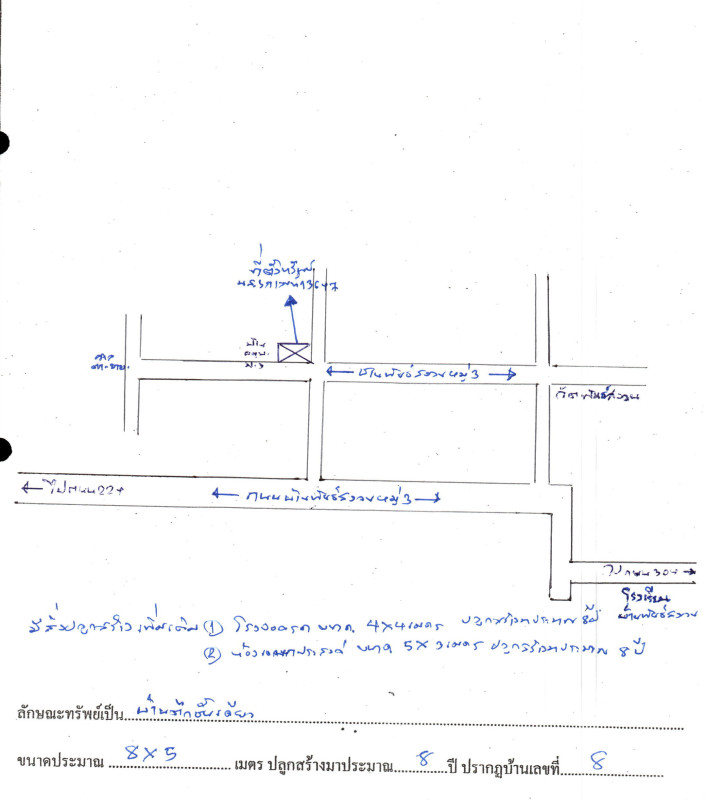 ที่ตั้งทรัพย์
น.ส.3ก เลขที่ 3647
บ้าน
ม.3
ศาล
ตา-ยาย
บ้านพันธ์สงวนหมู่ 3
วัดพันธ์สงวน
ไปถนน 224
ถนนบ้านพันธ์สงวนหมู่ 3
ไปถนน 304
โรงเรียน
บ้านพันธ์สงวน
มีสิ่งปลูกสร้างเพิ่มเติม (1) โรงจอดรถ ขนาด 4×4 เมตร ปลูกสร้างมาประมาณ 8 ปี
(2) ห้องเอนกประสงค์ ขนาด 5×3 เมตร ปลูกสร้างมาประมาณ 8 ปี
ลักษณะทรัพย์เป็น บ้านตึกชั้นเดียว
ขนาดประมาณ 8×5 เมตร ปลูกสร้างมาประมาณ 8 ปี ปรากฏบ้านเลขที่ 8